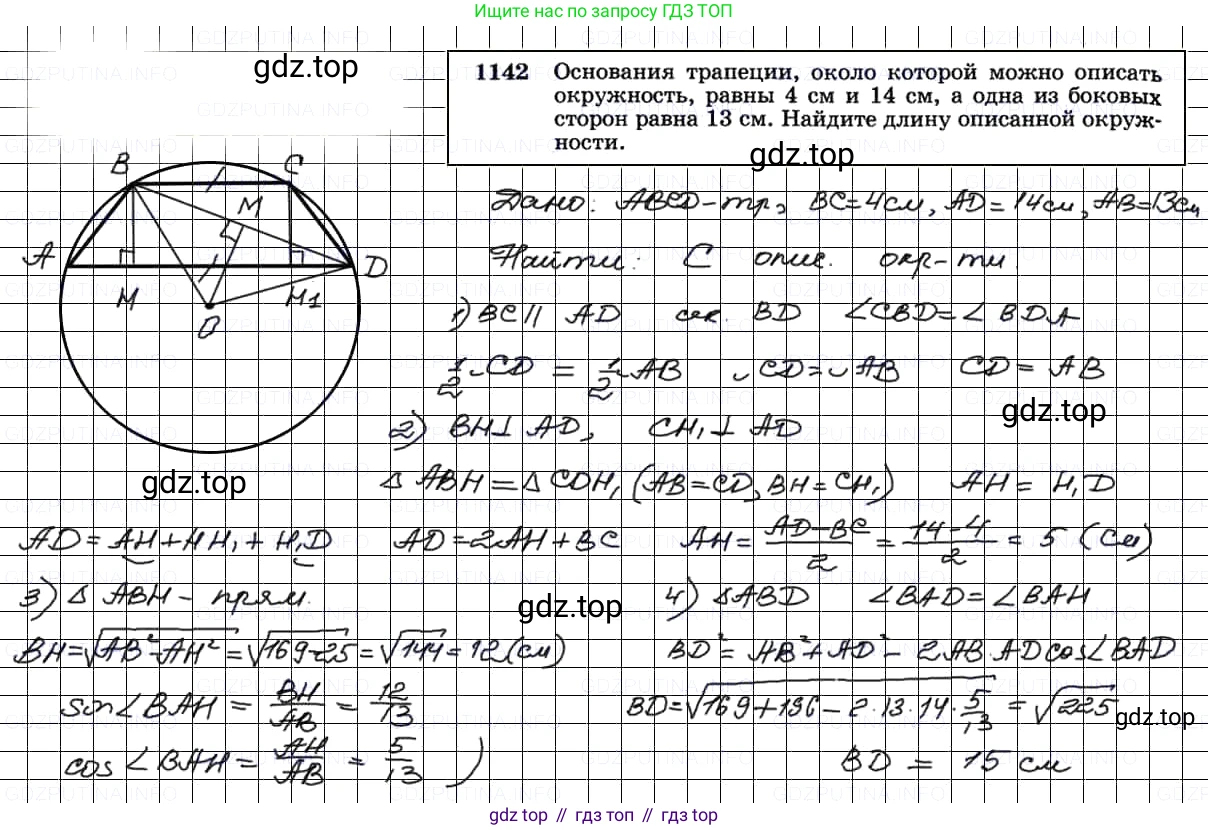 Ищите нас по запросу ГДЗ ТОП
gdz.top
1142 Основания трапеции, около которой можно описать
окружность, равны 4 см и 14 см, а одна из боковых
сторон равна 13 см. Найдите длину описанной окруж-
ности.
gdz.top
B C
M
A D
M M1
O
gdz.top
Дано: ABCD-тр, BC=4см, AD=14см, AB=13см
Найти: C опис. окр-ти.
1) BC || AD сек. BD ∠CBD=∠BDA
1/2 ◡CD = 1/2 ◡AB ◡CD=◡AB CD=AB
gdz.top
2) BH⊥AD, CH₁⊥AD
△ABH=△CDH₁ (AB=CD, BH=CH₁) AH=H₁D
AD=AH+HH₁+H₁D AD=2AH+BC AH=(AD-BC)/2=(14-4)/2=5 (см)
3) △ABH - прям. gdz.top 4) △ABD ∠BAD=∠BAH
BH=√(AB²-AH²)=√(169-25)=√144=12(см) BD²=AB²+AD²-2AB·AD cos∠BAD
sin∠BAH=BH/AB=12/13 BD=√(169+196-2·13·14·5/13)=√225 gdz.top
cos∠BAH=AH/AB=5/13 ) BD=15 см
gdz top // гдз топ // gdz top
GDZPUTINA.INFO